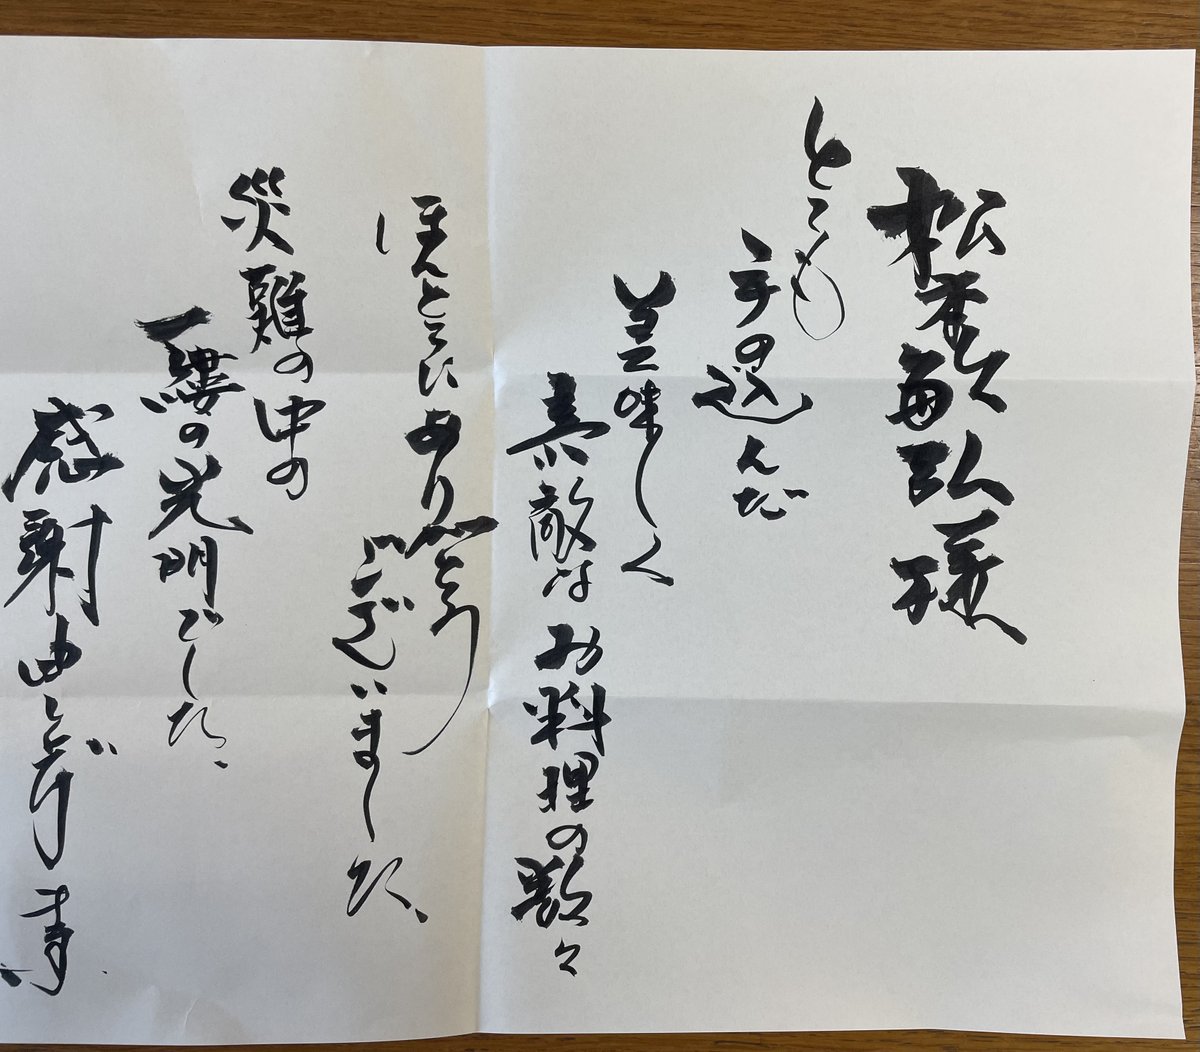 松 敏弘様
とても
手の込んだ
美味しく
素敵なお料理の数々
ほんとうにありがとう
ございました、
災難の中の
一縷の光明でした、
感謝申し上げます